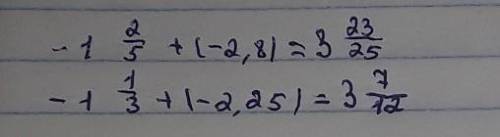 -1 2/5 + (-2,8) = 3 23/25
-1 1/3 + (-2,25) = 3 7/12